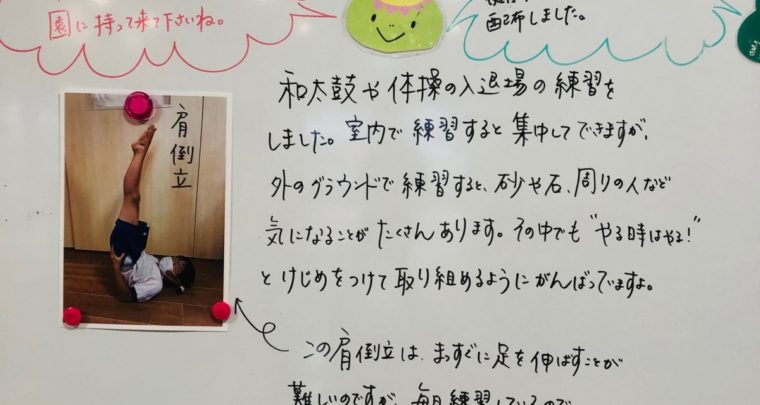 園に持って来て下さいね。
配布しました。
肩倒立
和太鼓や体操の入退場の練習を
しました。室内で練習すると集中してできますが、
外のグラウンドで練習すると、砂や石、周りの人など
気になることがたくさんあります。その中でも"やる時はやる!"
とけじめをつけて取り組めるようにがんばっていますよ。
この肩倒立は、まっすぐに足を伸ばすことが
難しいのですが、毎日練習しているので